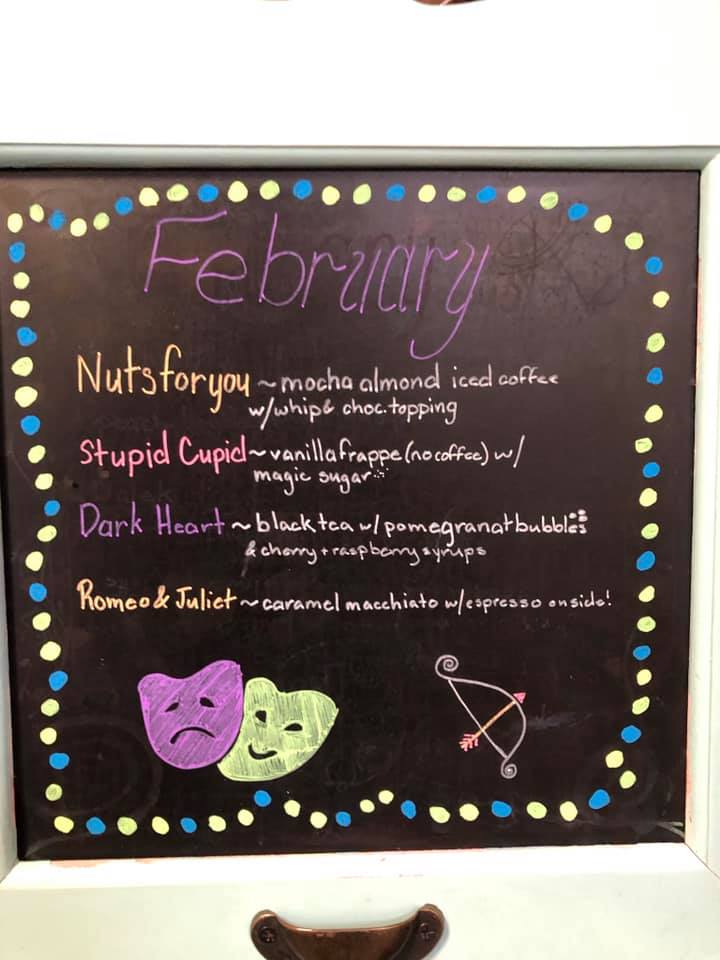 February
Nuts for you ~ mocha almond iced coffee
w/whip & choc. topping
Stupid Cupid ~ vanilla frappe (no coffee) w/
magic sugar
Dark Heart ~ black tea w/ pomegranat bubbles
& cherry + raspberry syrups
Romeo & Juliet ~ caramel macchiato w/espresso on side!